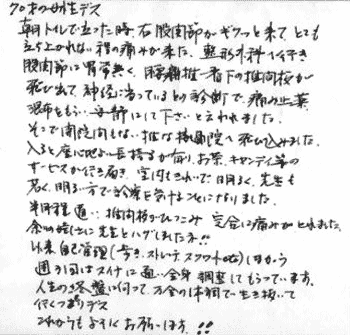 70才の女性デス
朝トイレで立った時、右股関節がギクッと来て、とても
立ち上がれない程の痛みが来た。整形外科へ行き
股関節に異常無く、腰椎一番下の椎間板が
飛び出て、神経に当っているとの診断で痛み止薬
湿布をもらい、安静にして下さいと言われました。
そこで開院間もない 院へ飛び込みました。
入ると座り心地よい長椅子が有り、お茶、キャンディ等の
サービスが行き届き、室内もきれいで、明るく、先生も
若く、明るい方で診療を受けることになりました。
半月程通い、椎間板がひっこみ 完全に痛みがとれました。
余りの嬉しさに先生とハグしましたネ!!
以来自己管理(歩き、ストレッチ、スクワット)はもちろん
週1回はスイナに通い全身調整してもらっています。
人生の終盤に向って、万全の体調で生き抜いて
行くつもりデス
これからもよろしくお願いします。!!